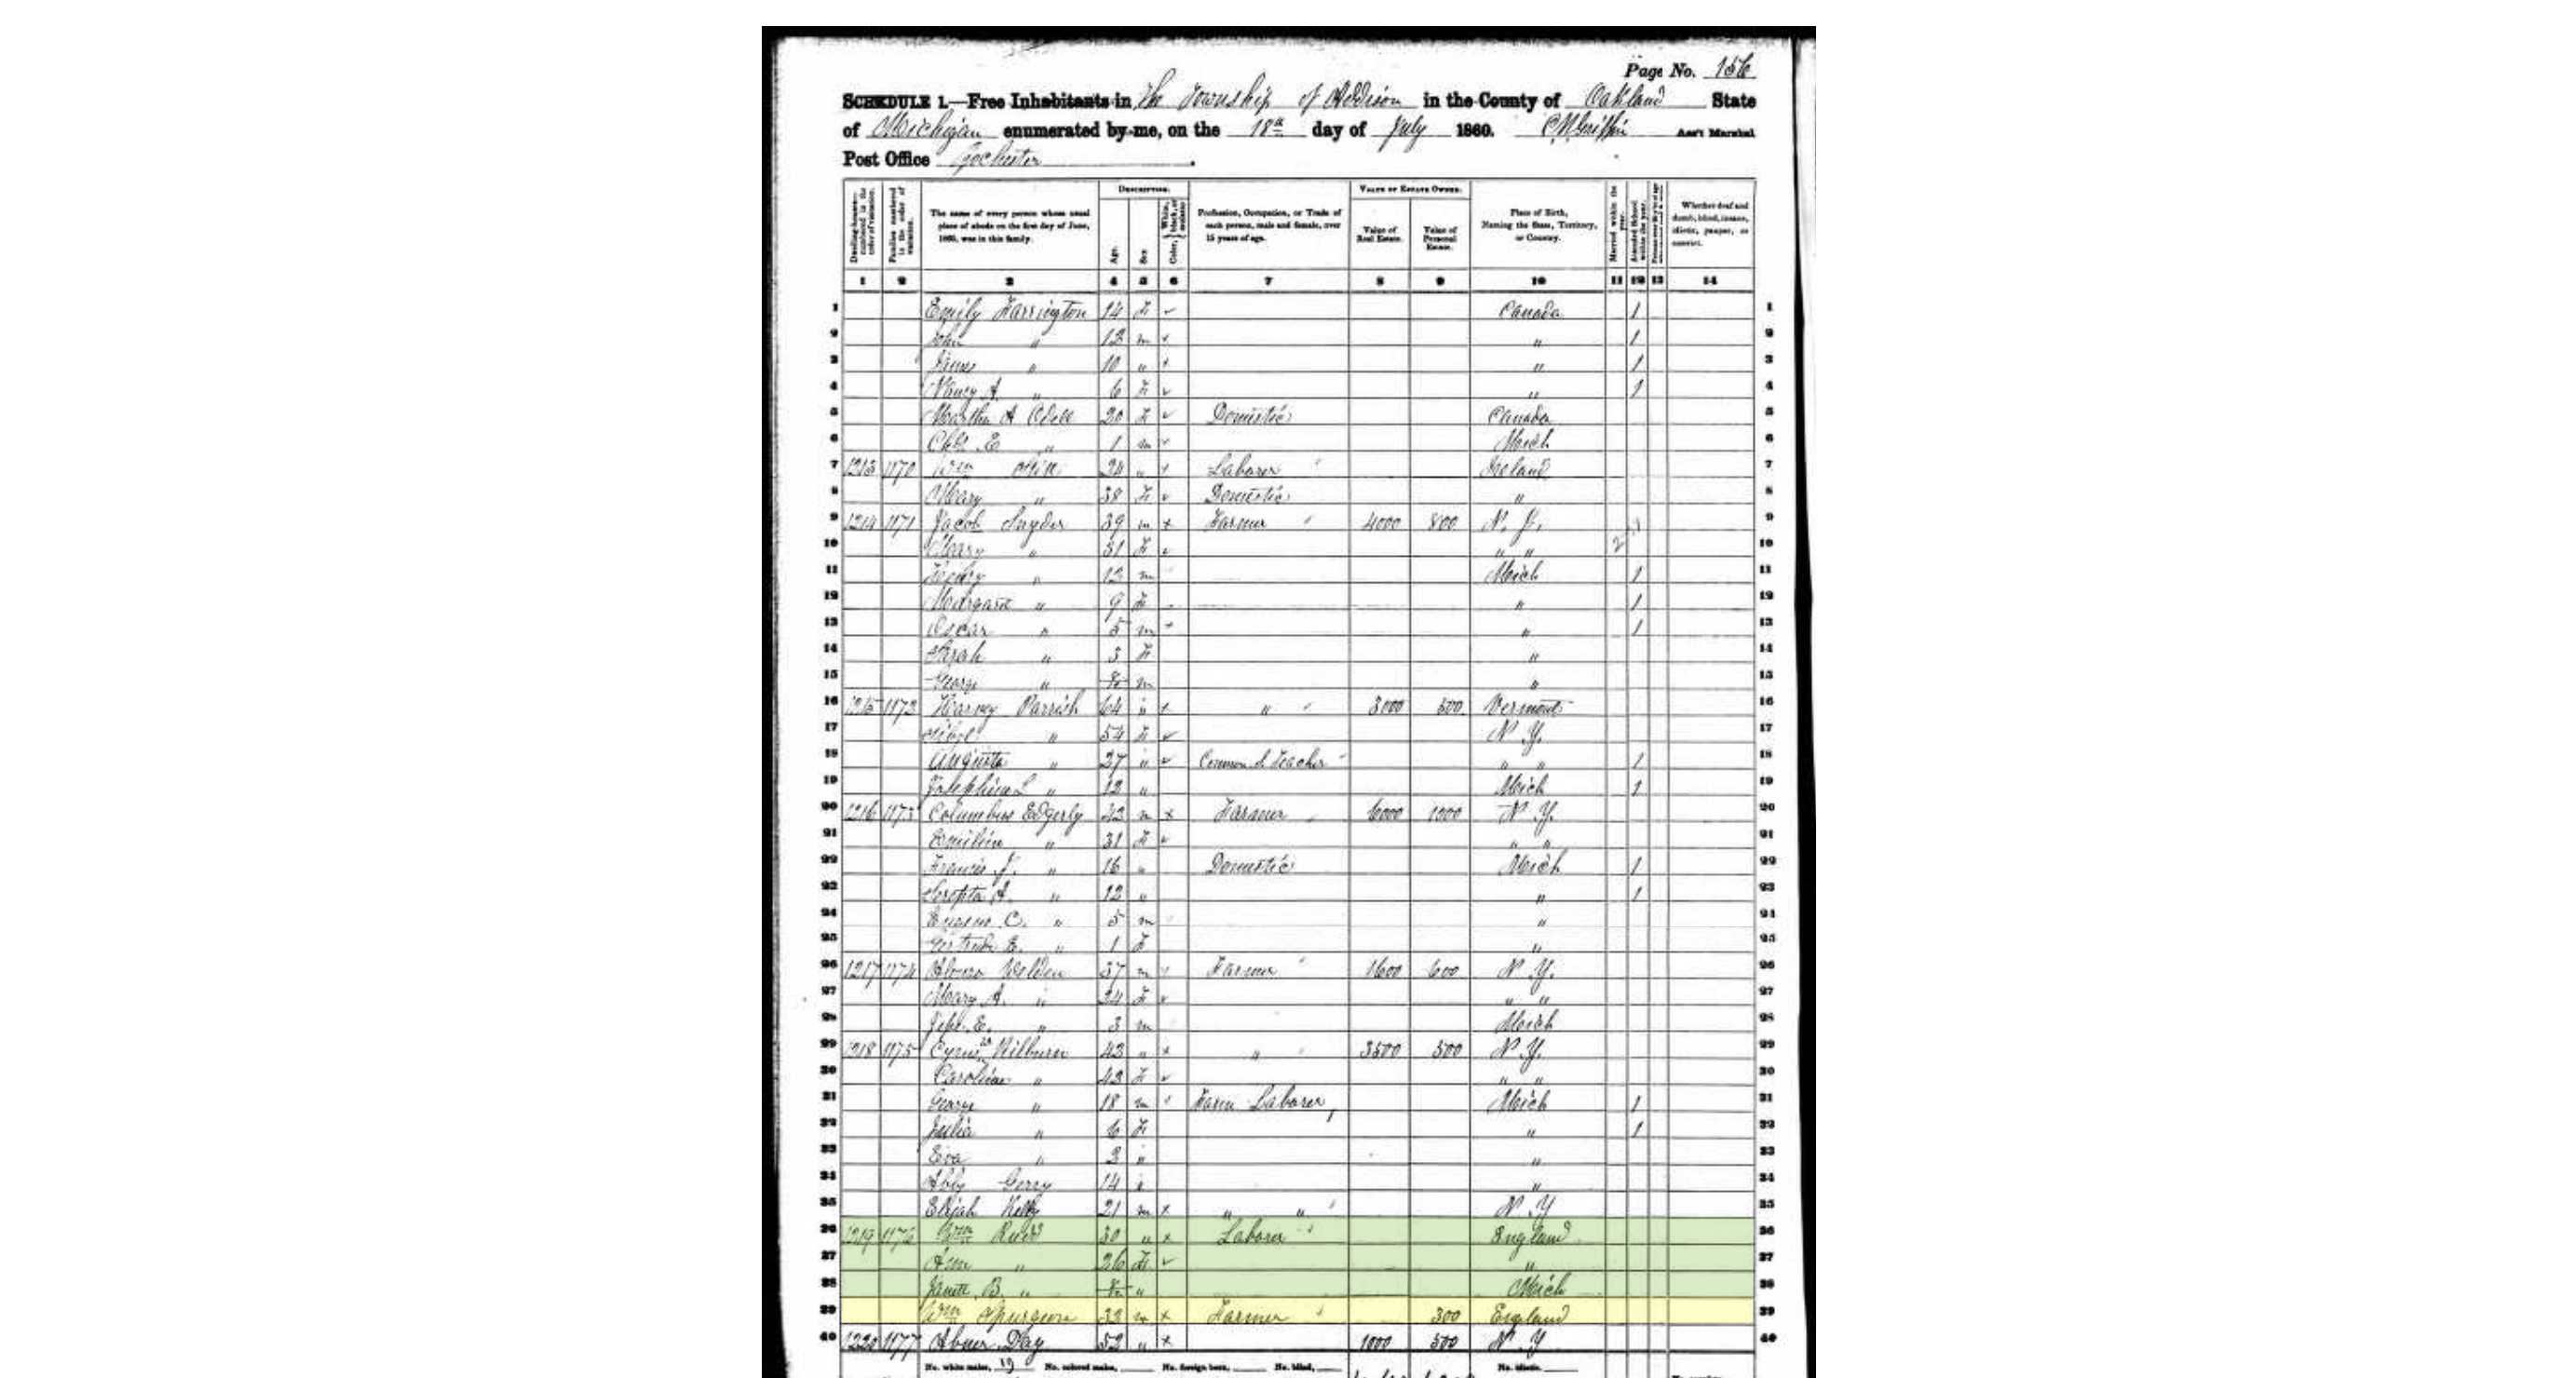 Page No. 156
SCHEDULE 1.—Free Inhabitants in The Township of Addison in the County of Oakland State
of Michigan enumerated by me, on the 18th day of July 1860. Ass't Marshal
Post Office Rochester.
DESCRIPTION. VALUE OF ESTATE OWNED.
Dwelling-houses—numbered in the order of visitation. Families numbered in the order of visitation. The name of every person whose usual place of abode on the first day of June, 1860, was in this family. Age. Sex Color, White, black, or mulatto Profession, Occupation, or Trade of each person, male and female, over 15 years of age. Value of Real Estate. Value of Personal Estate. Place of Birth, Naming the State, Territory, or Country. Married within the year. Attended School within the year. Whether deaf and dumb, blind, insane, idiotic, pauper, or convict.
1 2 3 4 5 6 7 8 9 10 11 12 13 14
1 Emily Farrington 14 F Canada 1 1
2 John " 12 m " 1 2
3 James " 10 " " 1 3
4 Nancy A. " 6 F " 1 4
5 Martha A Odell 20 F Domestic Canada 5
6 E " 1 m Mich 6
7 1213 1170 Wm 24 " Laborer Ireland 7
8 Mary " 38 F Domestic " 8
9 1214 1171 Jacob Snyder 39 m x Farmer 4000 800 N. J. 9
10 Mary " 31 F " " 10
11 Henry " 12 m Mich 1 11
12 Margaret " 9 F " 1 12
13 Oscar " 5 m " 1 13
14 Sarah " 3 F " 14
15 George " m " 15
16 1215 1172 Harvey Parrish 64 " x " 3000 500 Vermont 16
17 " 54 F N. Y. 17
18 Augusta " 27 " Common S. Teacher " " 1 18
19 Josephine L " 12 " Mich 1 19
20 1216 1173 Columbus Edgerly 43 m x Farmer 6000 1000 N. Y. 20
21 Emiline " 31 F " " 21
22 Francis J. " 16 " Domestic Mich 1 22
23 A. " 12 " " 1 23
24 Eugene C. " 5 m " 24
25 Gertrude E. " 1 F " 25
26 1217 1174 Alonzo Welden 37 m Farmer 1600 600 N. Y. 26
27 Mary A. " 24 F " " 27
28 E. " 3 m Mich 28
29 1218 1175 Cyrus Wilburn 43 " x " 3500 500 N. Y. 29
30 Caroline " 43 F " " 30
31 George " 18 m Farm Laborer Mich 1 31
32 Julia " 6 F " 1 32
33 Eva " 3 " " 33
34 Abby Gerry 14 " " 34
35 Elijah Kelly 21 m x " " N. Y 35
36 1219 1176 Wm 30 " x Laborer England 36
37 Ann " 26 F " 37
38 B. " " Mich 38
39 Wm Spurgeon 33 m x Farmer 300 England 39
40 1220 1177 Abner Day 52 " x 1000 500 N. Y 40
No. white males, 19 No. colored males, No. foreign born, No. blind, No. idiotic.